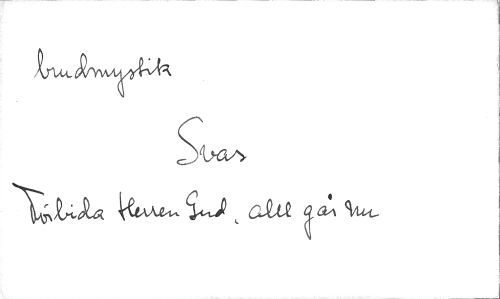 brudmystik
Svas
Förbida Herren Gud, allt går nu